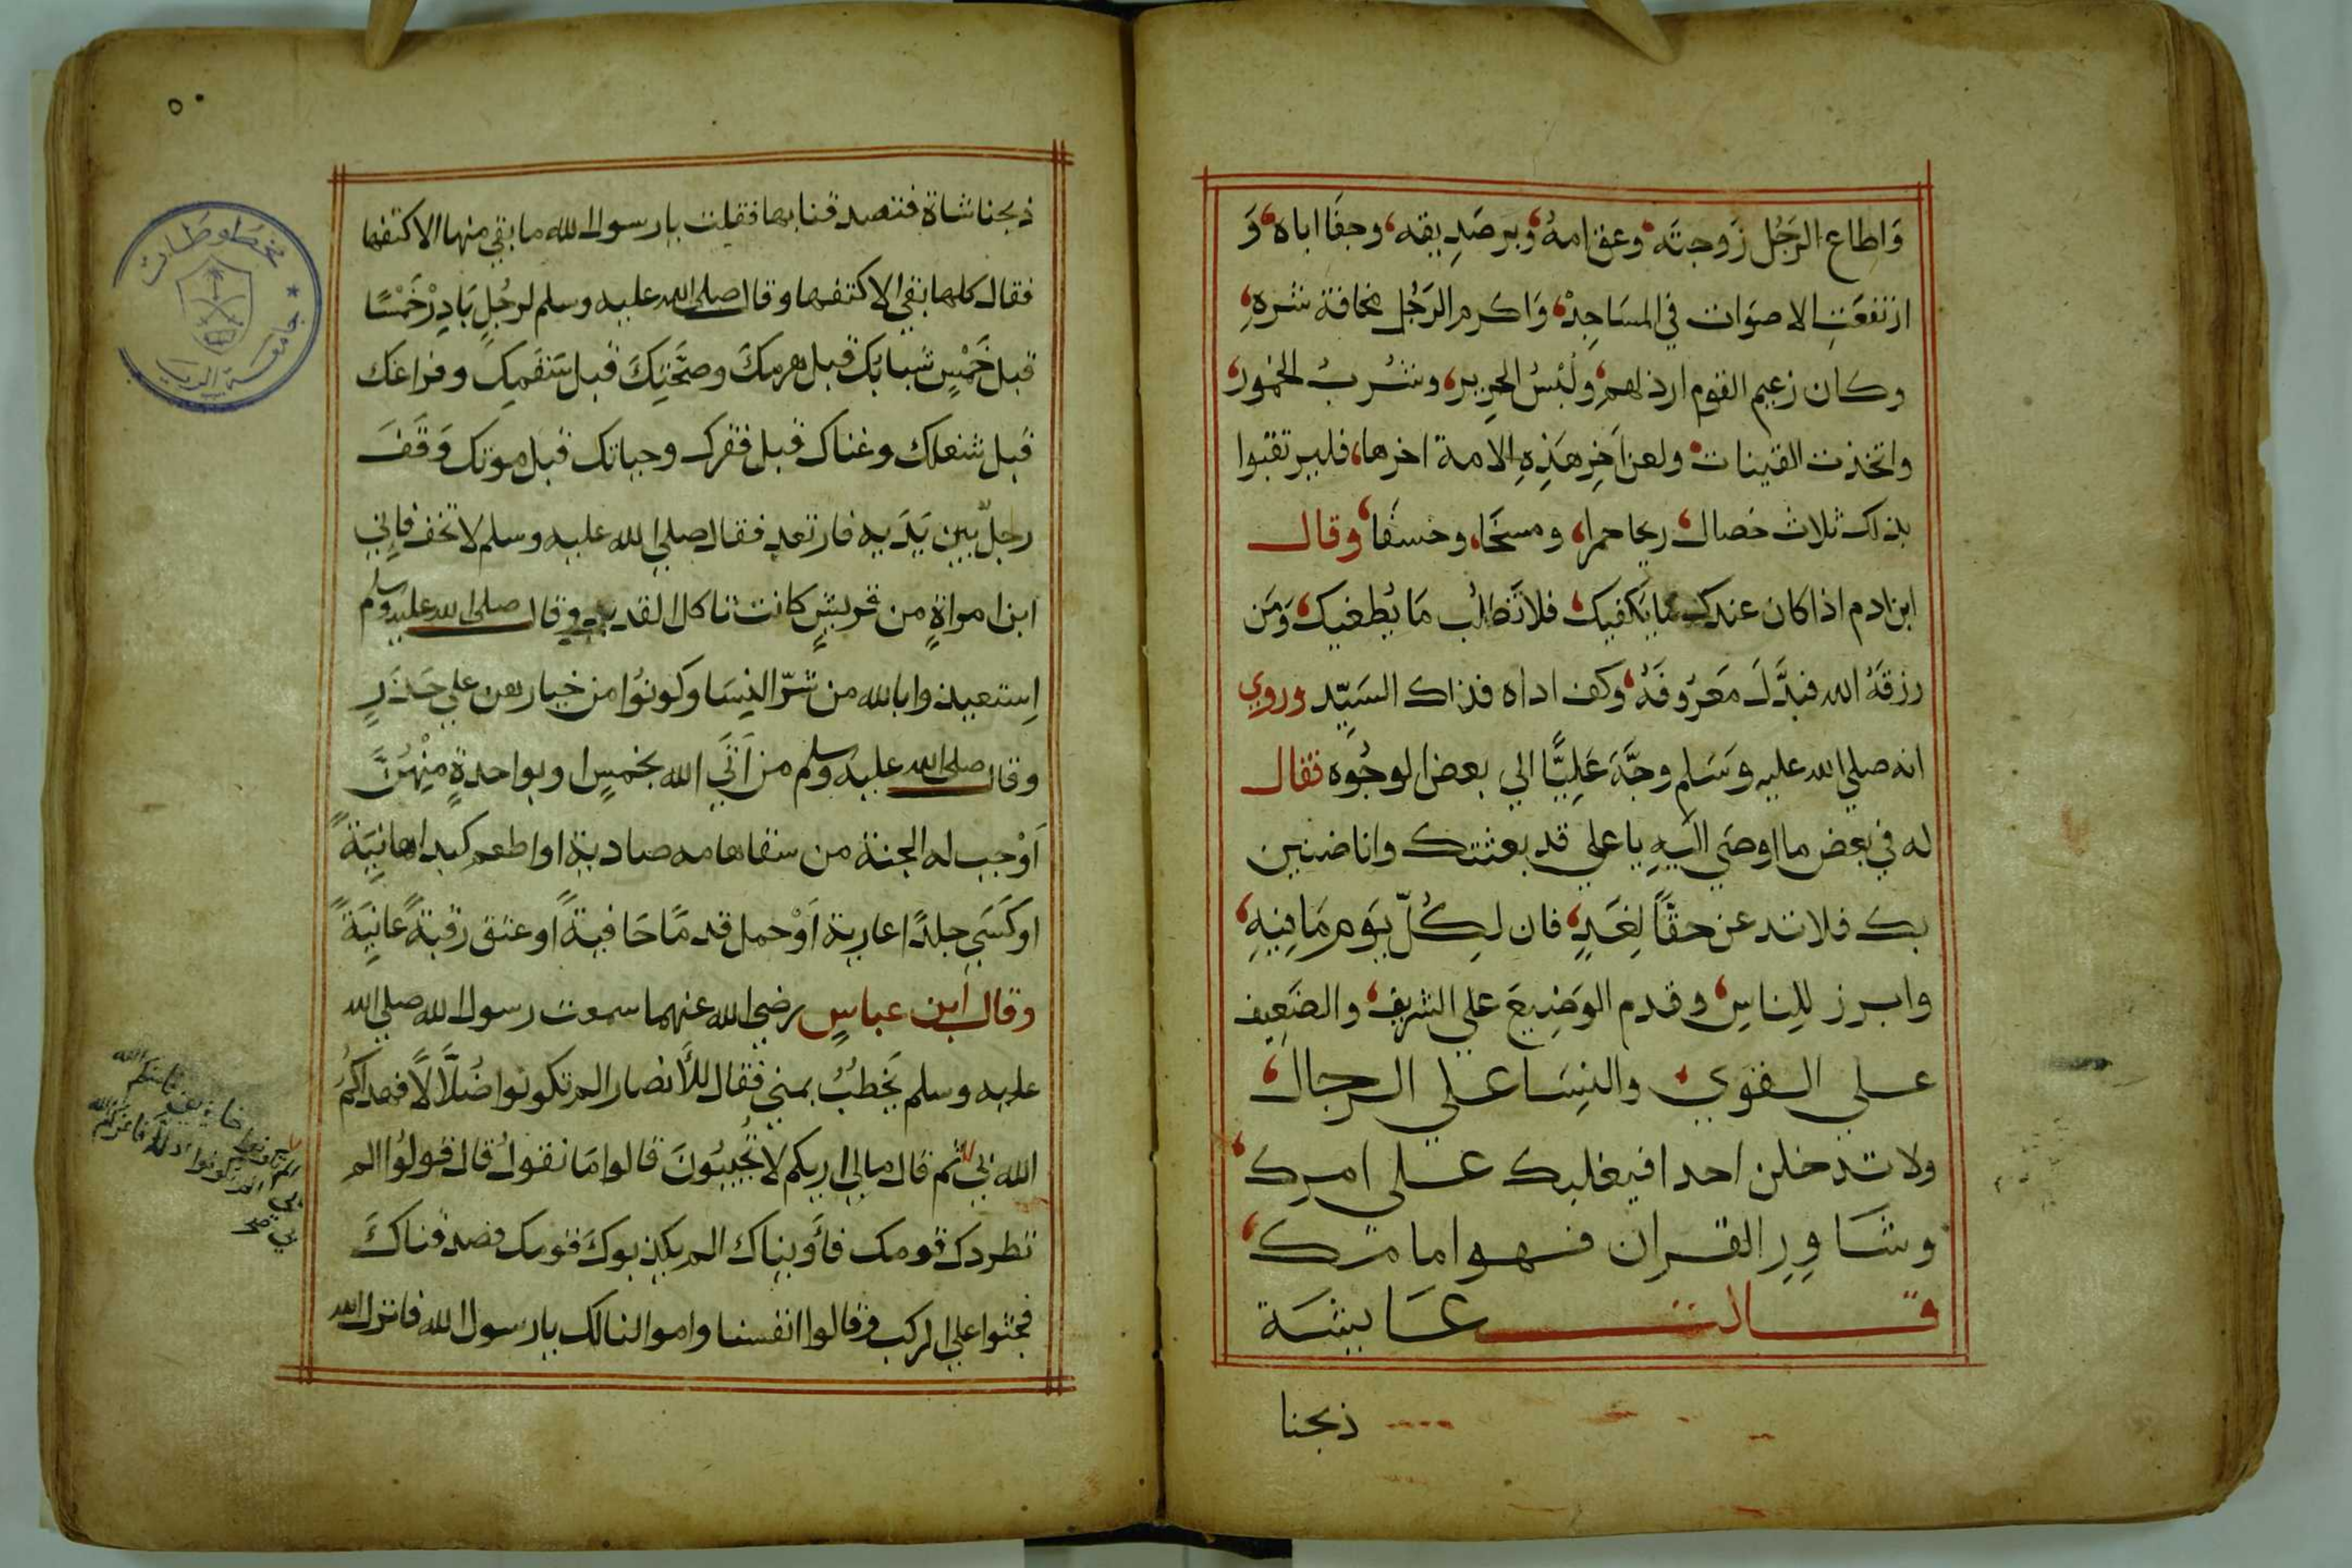 وَاطاع الرَجُل زَوجتَه وعق امهُ وبر صَدِيقه وجفَا اباه وَ
ارتفعَتِ الاصوَات في المسَاجِدْ وَاكرم الرَجُل مخافة شره
وكان زعيم القوم ارذلهم ولُبْسُ الحرِير وشُربُ الخمُور
واتخذت القينات ولعن آخِر هَذِهِ الامة اخرها فليرتقبوا
بذلك ثلاث خصال ريحا حمرا ومسخَا وخسفَا وقال
ابن ادم اذا كان عندك ما يَكفيك فلا تَطلُب مَا يُطغيك وَمَن
رزقهُ الله فبذَّلَ مَعرُوفَهُ وكف اداه فذاك السَيِّد وروي
انه صلي الله عليه وسَلم وجَّهَ عَلِيًّا الي بعض الوجُوه فقال
له في بعض ما اوصَي اليهِ يا علي قد بعثتك وانا ضنين
بك فلا تدعن حقًا لِغَدٍ فان لِكُلّ يَوم مَا فِيهِ
وابرز للِناسِ وقدم الوَضِيعَ علي الشريف والضَعِيف
علي القوي والنِسَا علي الرجال
ولا تدخلن احدا فيغلبك علي امرك
وشَاوِرِ القران فهو امامك
قالت عَايشَة
ذبحنا
٥٠
مخطوطات
جامعة الرياض
ذبحنا شاة فتصدقنا بها فقلت يارسول الله ما بقي منها الا كتفها
فقال كلها بقي الا كتفها وقال صلي الله عليه وسلم لرجُلٍ بَادِرْ خَمْسًا
قبل خَمْسٍ شبابَك قبل هرمِكَ وصحَّتِكَ قبل سَقمِك وفراغك
قبل شغلك وغناك قبل فقرك وحياتك قبل موتك وَقَفَ
رجلٌ بين يَدَيه فارتعد فقال صلي الله عليه وسلم لا تخف فاِني
ابن امراةٍ من قريشٍ كانت تاكل القديد وقال صلي الله عليه وسلم
اِستعيذوا بالله من شرّ النِسَا وكونُوا من خيارهن علي حَذَرٍ
وقال صلي الله عليه وسلم من اَتَي الله بخمسٍ او بواحدةٍ مِنْهُنَّ
اَوْجب له الجنة من سقا هامه صادية او اطعم كبدا هافِيَةً
او كَسَي جلدًا عارية اَوْ حمل قدمًا حَافيةً او عتق رقبةً عانِيَةً
وقال ابن عباسٍ رضي الله عنهما سمعت رسول الله صلي الله
عليه وسلم يخطبُ بمني فقال للأنصار الم تكونوا ضُلَّالًا فهداكمُ
الله بي ثم قال مالي اريكم لا تُجيبُونَ قالوا مَا نقولُ قال قولُوا الم
تطردك قومك فأَويناك الم يكذبوكَ قومك فصدقناكَ
فجثوا علي الركب وقالوا انفسنا واموالنا لك يارسول الله فانزل الله
خايفين فامنكم الله
الم تكونوا اذلة فاعزكم الله
بي صح